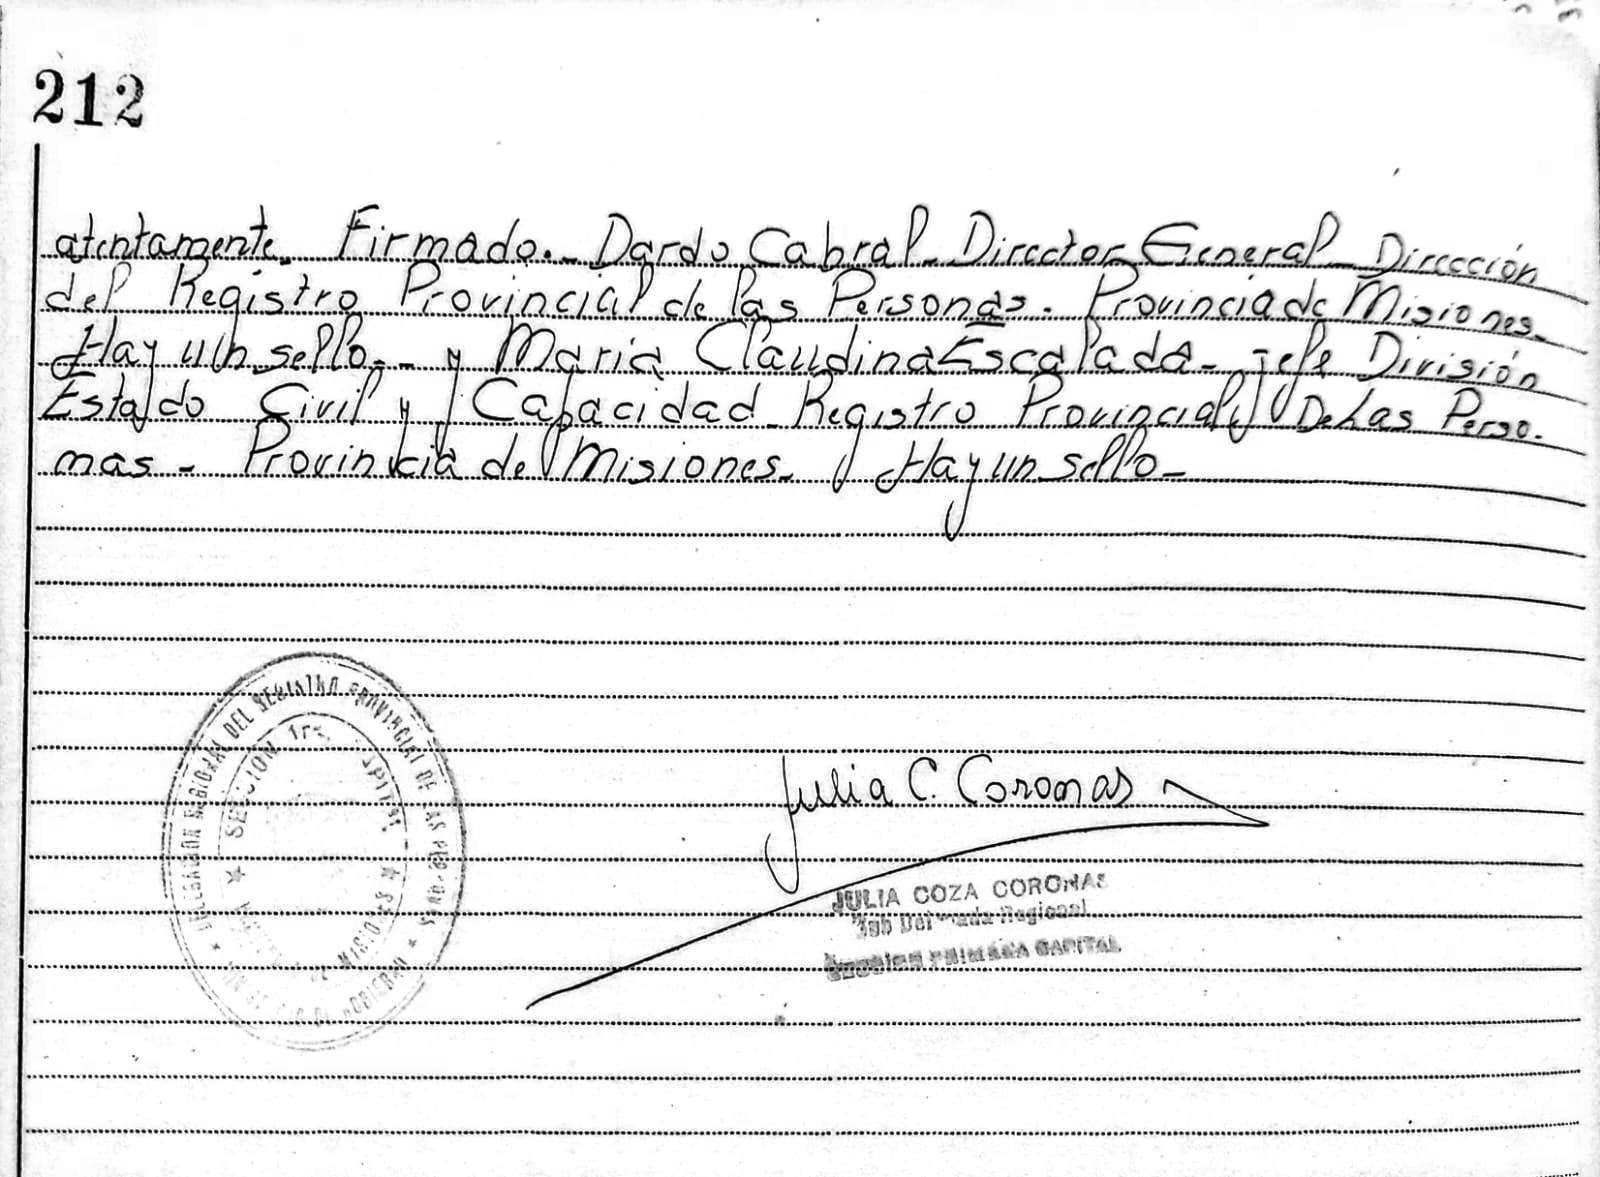 212
atentamente. Firmado.- Dardo Cabral- Director General- Dirección
del Registro Provincial de las Personas. Provincia de Misiones.
Hay un sello.- y Maria Claudina Escalada- jefe División
Estado Civil y Capacidad Registro Provincial De Las Perso-
nas- Provincia de Misiones. Hay un sello-
DEL REGISTRO PROVINCIAL DE LAS PERSONAS
SECCION 1ra CAPITAL
Julia C. Coronas
JULIA COZA CORONAS
Sub Delegada Regional
SECCION PRIMERA CAPITAL